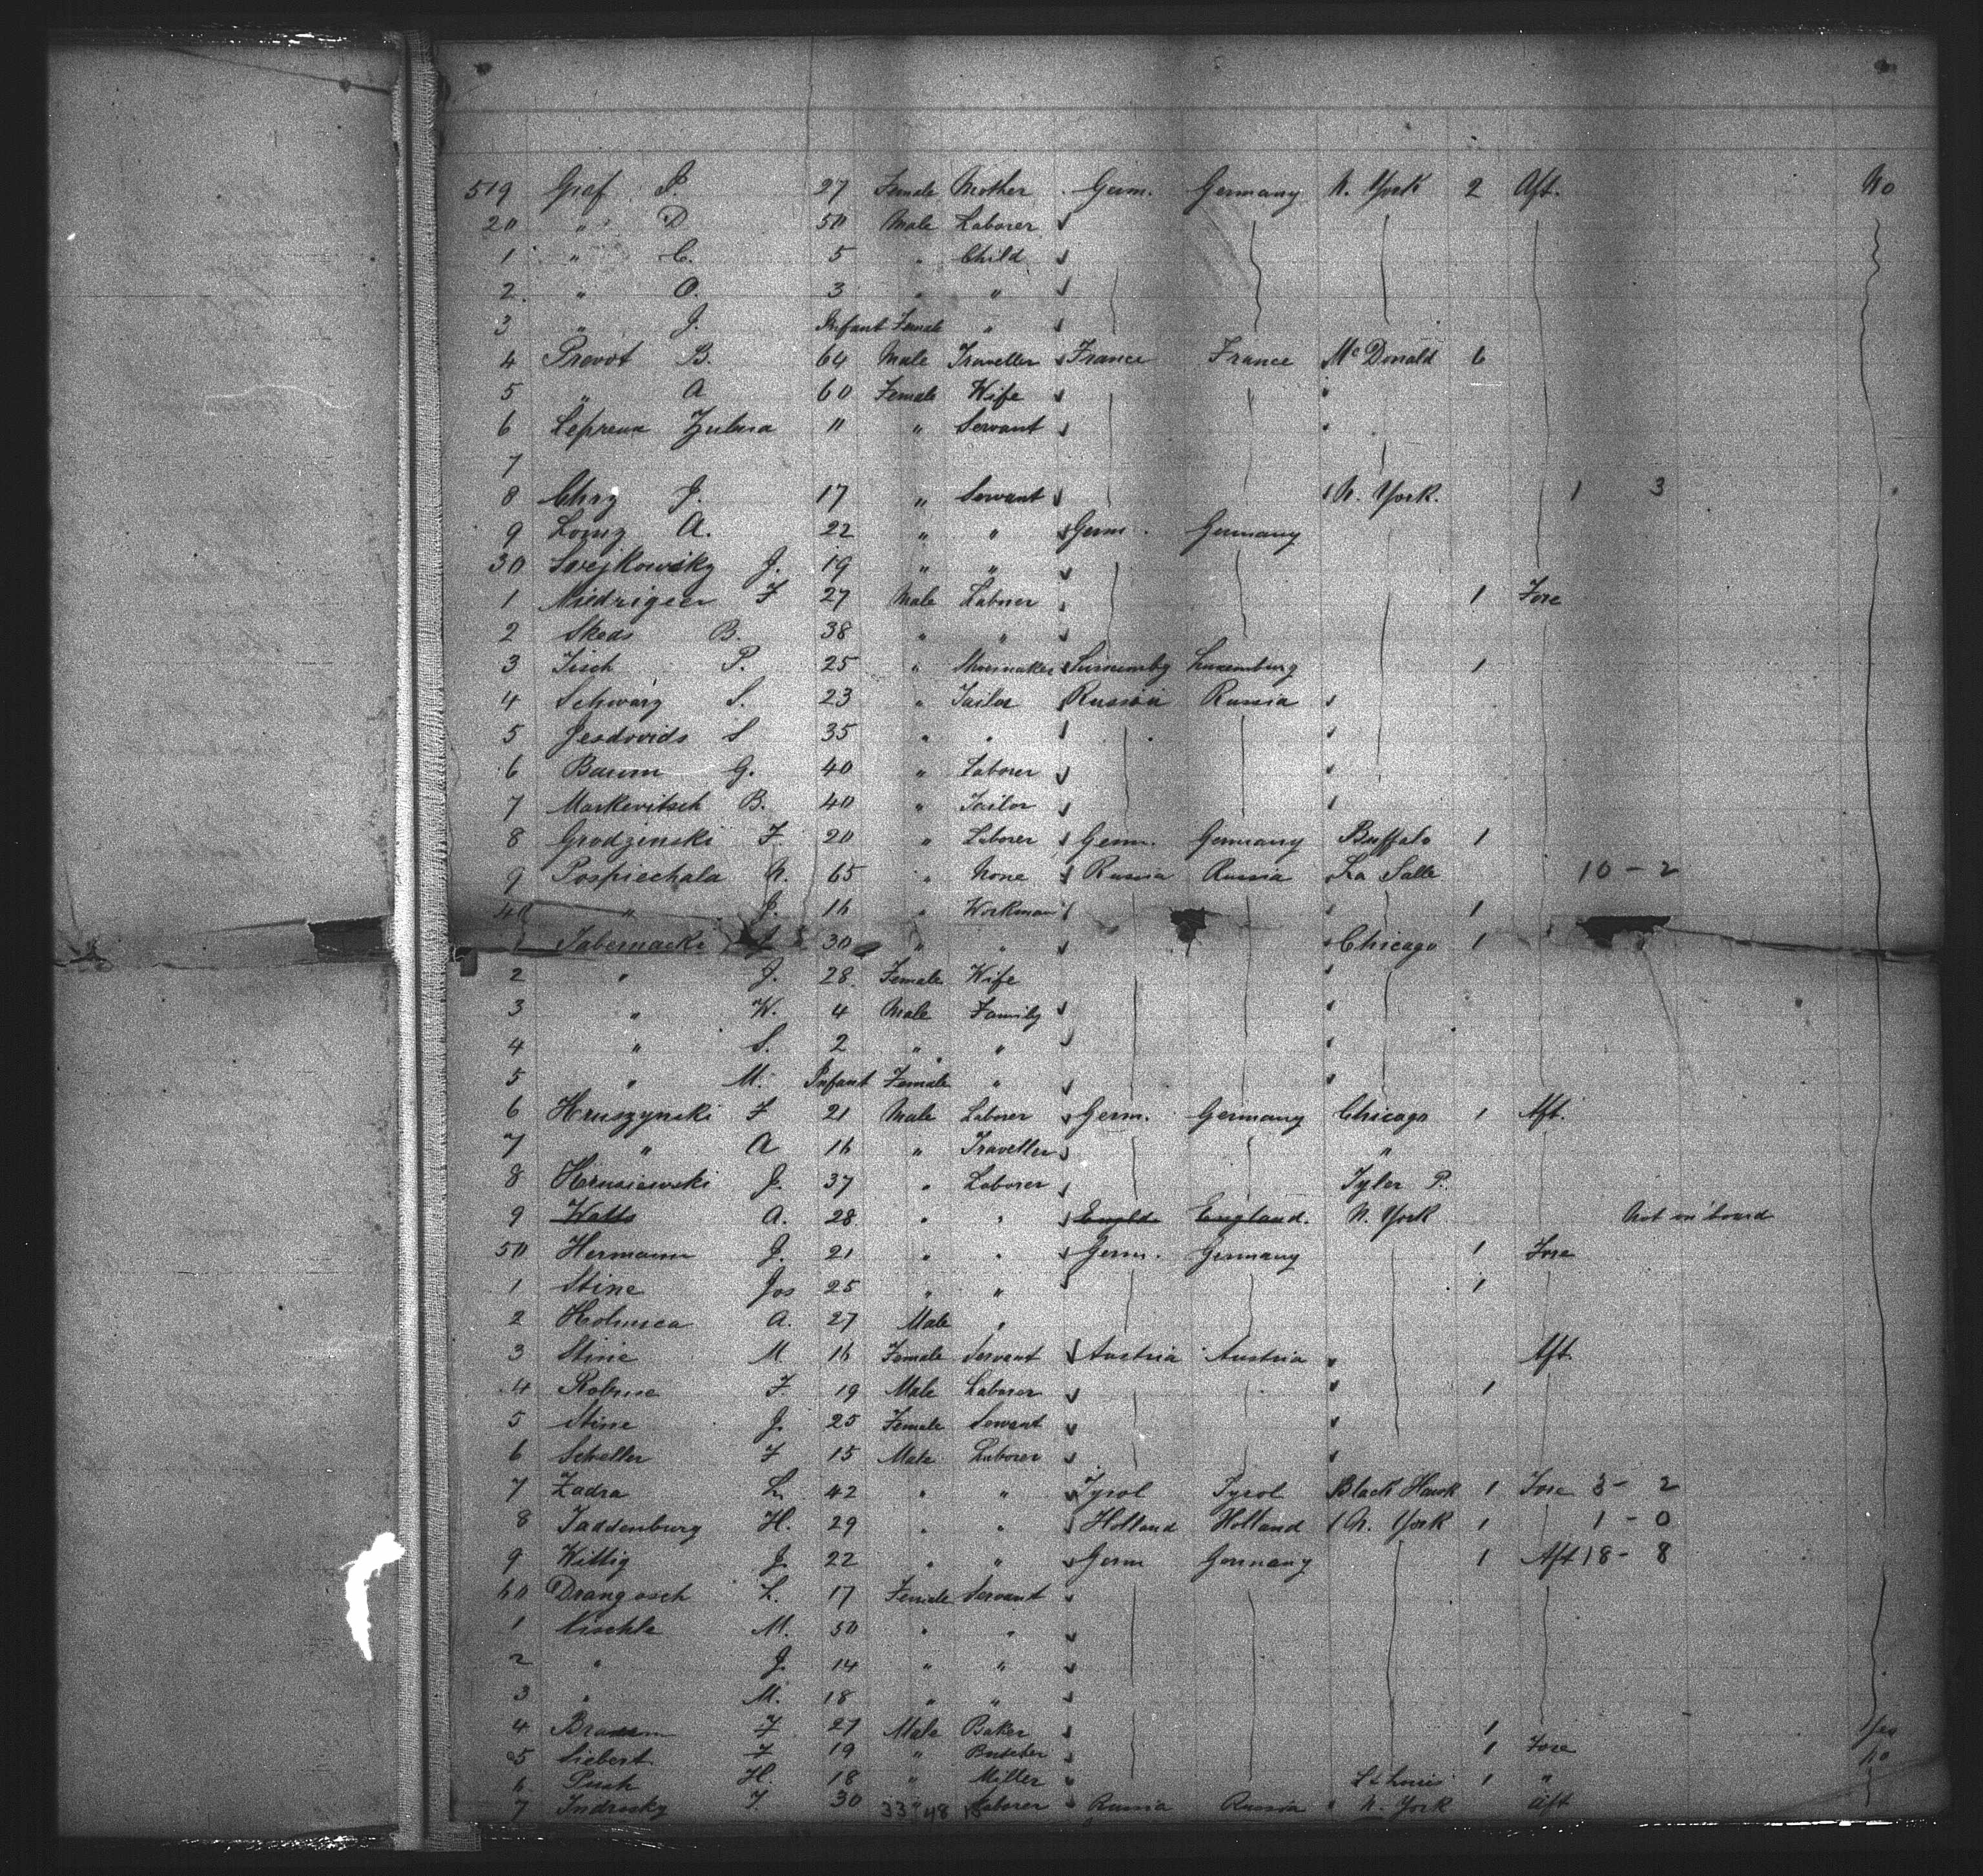 519 Graf P. 27 Female Mother Germ. Germany N. York 2 Aft. No
20 " D 50 Male Laborer
1 " C. 5 " Child
2 " O. 3 " "
3 " J. Infant Female "
4 Prevot B. 64 Male Traveller France France McDonald 6
5 " A 60 Female Wife "
6 Zulma 11 " Servant "
7
8 J. 17 " Servant N. York. 1 3
9 A. 22 " " Germ. Germany
30 J. 19 " "
1 F 27 Male Laborer 1 Fore
2 B. 38 " "
3 P. 25 " Shoemaker Luxemburg 1
4 Schwarz S. 23 " Tailor Russia Russia
5 S 35 " "
6 Baum G. 40 " Laborer
7 Markevitsch B. 40 " Tailor
8 Grodzinski F. 20 " Laborer Germ. Germany Buffalo 1
9 Pospiechala N. 65 " None Russia Russia La Salle 10 - 2
40 " J. 16 " Workman 1
1 Tabernacki 30 " " Chicago 1
2 " J. 28 Female Wife
3 " W. 4 Male Family
4 " S. 2 " "
5 " M. Infant Female "
6 Hruszynski F 21 Male Laborer Germ. Germany Chicago 1 Aft.
7 " A 16 " Traveller "
8 J. 37 " Laborer Tyler P.
9 Watts A. 28 " " England. N. York Not on board
50 Hermann J. 21 " " Germ. Germany 1 Fore
1 Stine Jos 25 " " 1
2 A. 27 Male "
3 Stine M. 16 Female Servant Austria Austria Aft.
4 F. 19 Male Laborer 1
5 Stine J. 25 Female Servant
6 Scheller F 15 Male Laborer
7 Zadra L. 42 " " Tyrol Tyrol Black Hawk 1 Fore 3 - 2
8 Taddenburg H. 29 " " Holland Holland N. York 1 1 - 0
9 Wittig J. 22 " " Germ Germany 1 Aft 18 - 8
60 Drangosch L. 17 Female Servant
1 M. 50 " "
2 " J. 14 " "
3 " M. 18 " "
4 F. 27 Male Baker 1 Yes
5 Siebert F 19 " Butcher 1 Fore No
6 H. 18 " Miller St Louis 1 "
7 Indrosky 30 Laborer Russia Russia N. York Aft
33 48